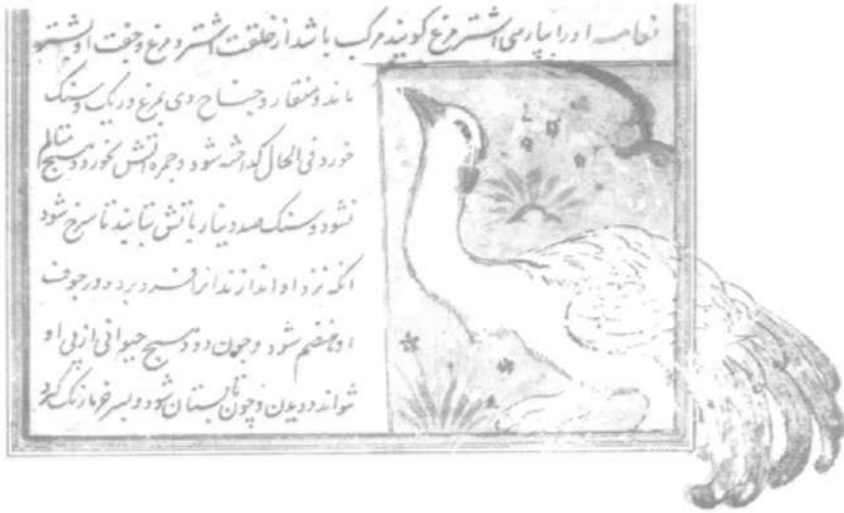 نعامه اورا بپارسی اشتر مرغ کویند مرکب باشد از خلقت اشتر و مرغ و جفت او بشتر
ماند و منقار و جناح وی بمرغ و ریک و سنک
خورد فی الحال کداخته شود و جمره اتش بخورد و هیچ متالم
نشود و سنک صد دینار باتش بتابند تا سرخ شود
انکه نزد او اندازند انرا فرو برد و در جوف
او منهضم شود و چون دود هیچ حیوانی از پی او
نتواند دویدن و چون تابستان شود و بسر خرما رنک کرد